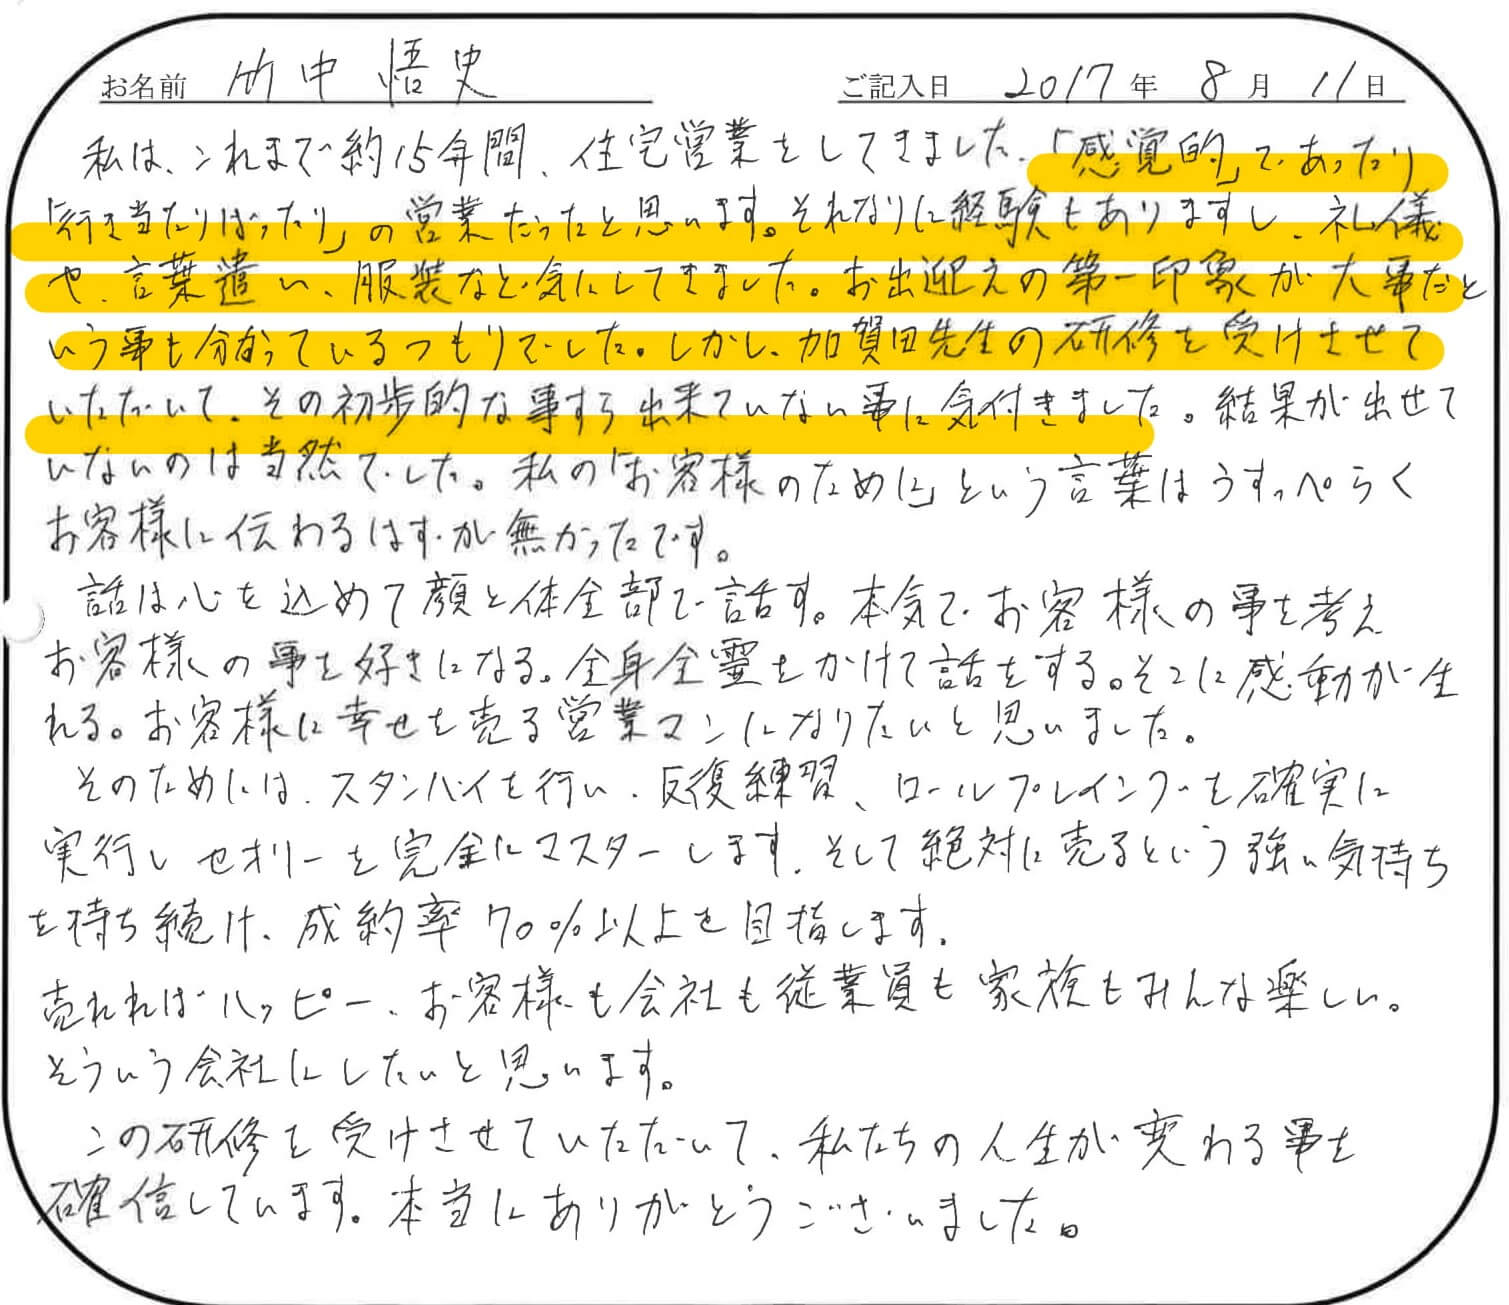 お名前 竹中 悟史 ご記入日 2017年 8月 11日
私は、これまで約15年間、住宅営業をしてきました。「感覚的」であったり
「行き当たりばったり」の営業だったと思います。それなりに経験もありますし、礼儀
や、言葉遣い、服装など気にしてきました。お出迎えの第一印象が大事だと
いう事も分かっているつもりでした。しかし、加賀田先生の研修を受けさせて
いただいて、その初歩的な事すら出来ていない事に気付きました。結果が出せて
いないのは当然でした。私の「お客様のために」という言葉はうすっぺらく
お客様に伝わるはずが無かったです。
話は心を込めて顔と体全部で話す。本気でお客様の事を考え
お客様の事を好きになる。全身全霊をかけて話をする。そこに感動が生
れる。お客様に幸せを売る営業マンになりたいと思いました。
そのためには、スタンバイを行い、反復練習、ロールプレイングを確実に
実行しセオリーを完全にマスターします。そして絶対に売るという強い気持ち
を持ち続け、成約率70%以上を目指します。
売れればハッピー、お客様も会社も従業員も家族もみんな楽しい。
そういう会社にしたいと思います。
この研修を受けさせていただいて、私たちの人生が変わる事を
確信しています。本当にありがとうございました。